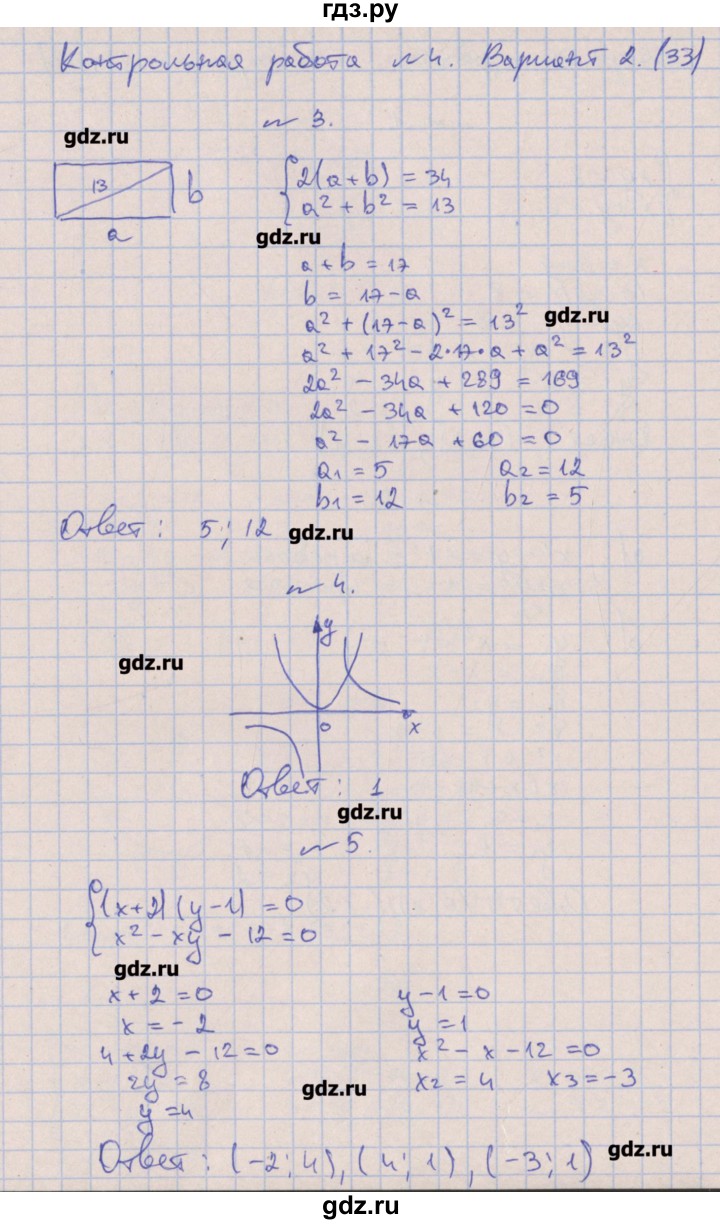 гдз.ру
Контрольная работа №4. Вариант 2. (33)
gdz.ru
№ 3.
13
b
a
2(a+b) = 34
a² + b² = 13
gdz.ru
a + b = 17
b = 17-a
a² + (17-a)² = 13²
gdz.ru
a² + 17² - 2·17·a + a² = 13²
2a² - 34a + 289 = 169
2a² - 34a + 120 = 0
a² - 17a + 60 = 0
a₁ = 5 a₂ = 12
b₁ = 12 b₂ = 5
Ответ: 5; 12
gdz.ru
№ 4.
y
gdz.ru
0
x
Ответ: 1
gdz.ru
№ 5.
(x+2)(y-1) = 0
x² - xy - 12 = 0
gdz.ru
x + 2 = 0 y - 1 = 0
x = -2 y = 1
4 + 2y - 12 = 0 x² - x - 12 = 0
2y = 8 x₂ = 4 x₃ = -3
gdz.ru
y = 4
Ответ: (-2; 4), (4; 1), (-3; 1)
gdz.ru
gdz.ru